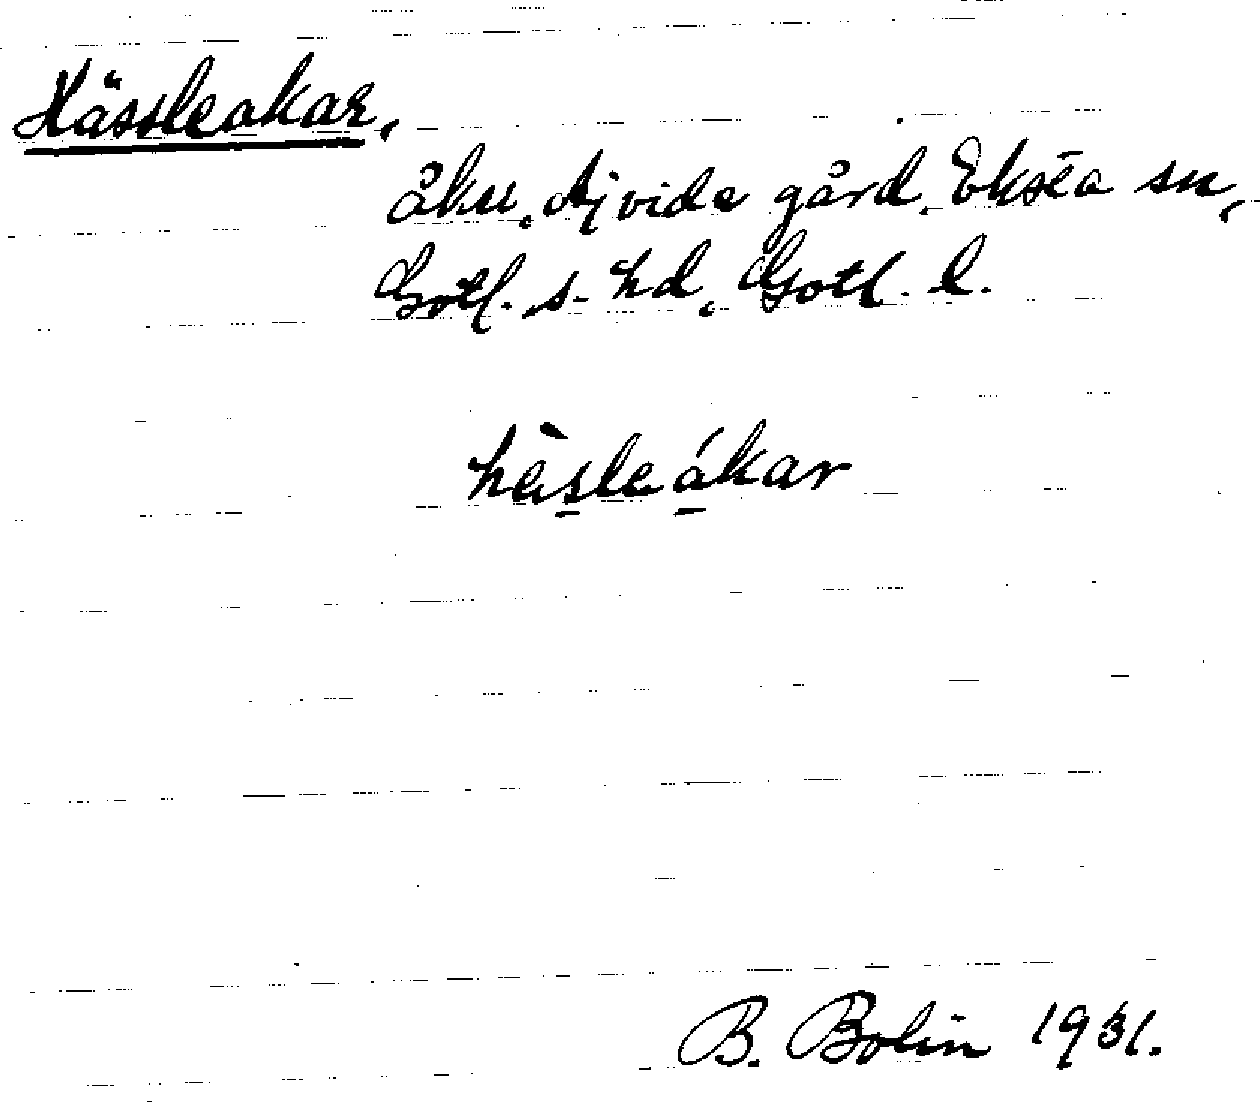 Hässleakar,
åku, Ajvide gård, Eksta sn,
Gotl. s. hd, Gotl. l.
hèsleákar
B. Bolin 1931.